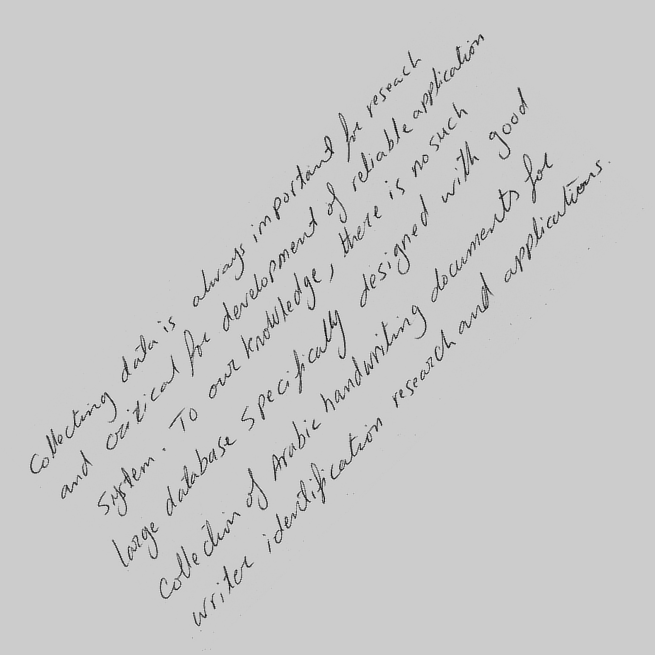 Collecting data is always important for reseach
and critical for development of reliable application
System. To our knowledge, there is no such
large database specifically designed with good
Collection of Arabic handwriting documents for
writer identification research and applications.